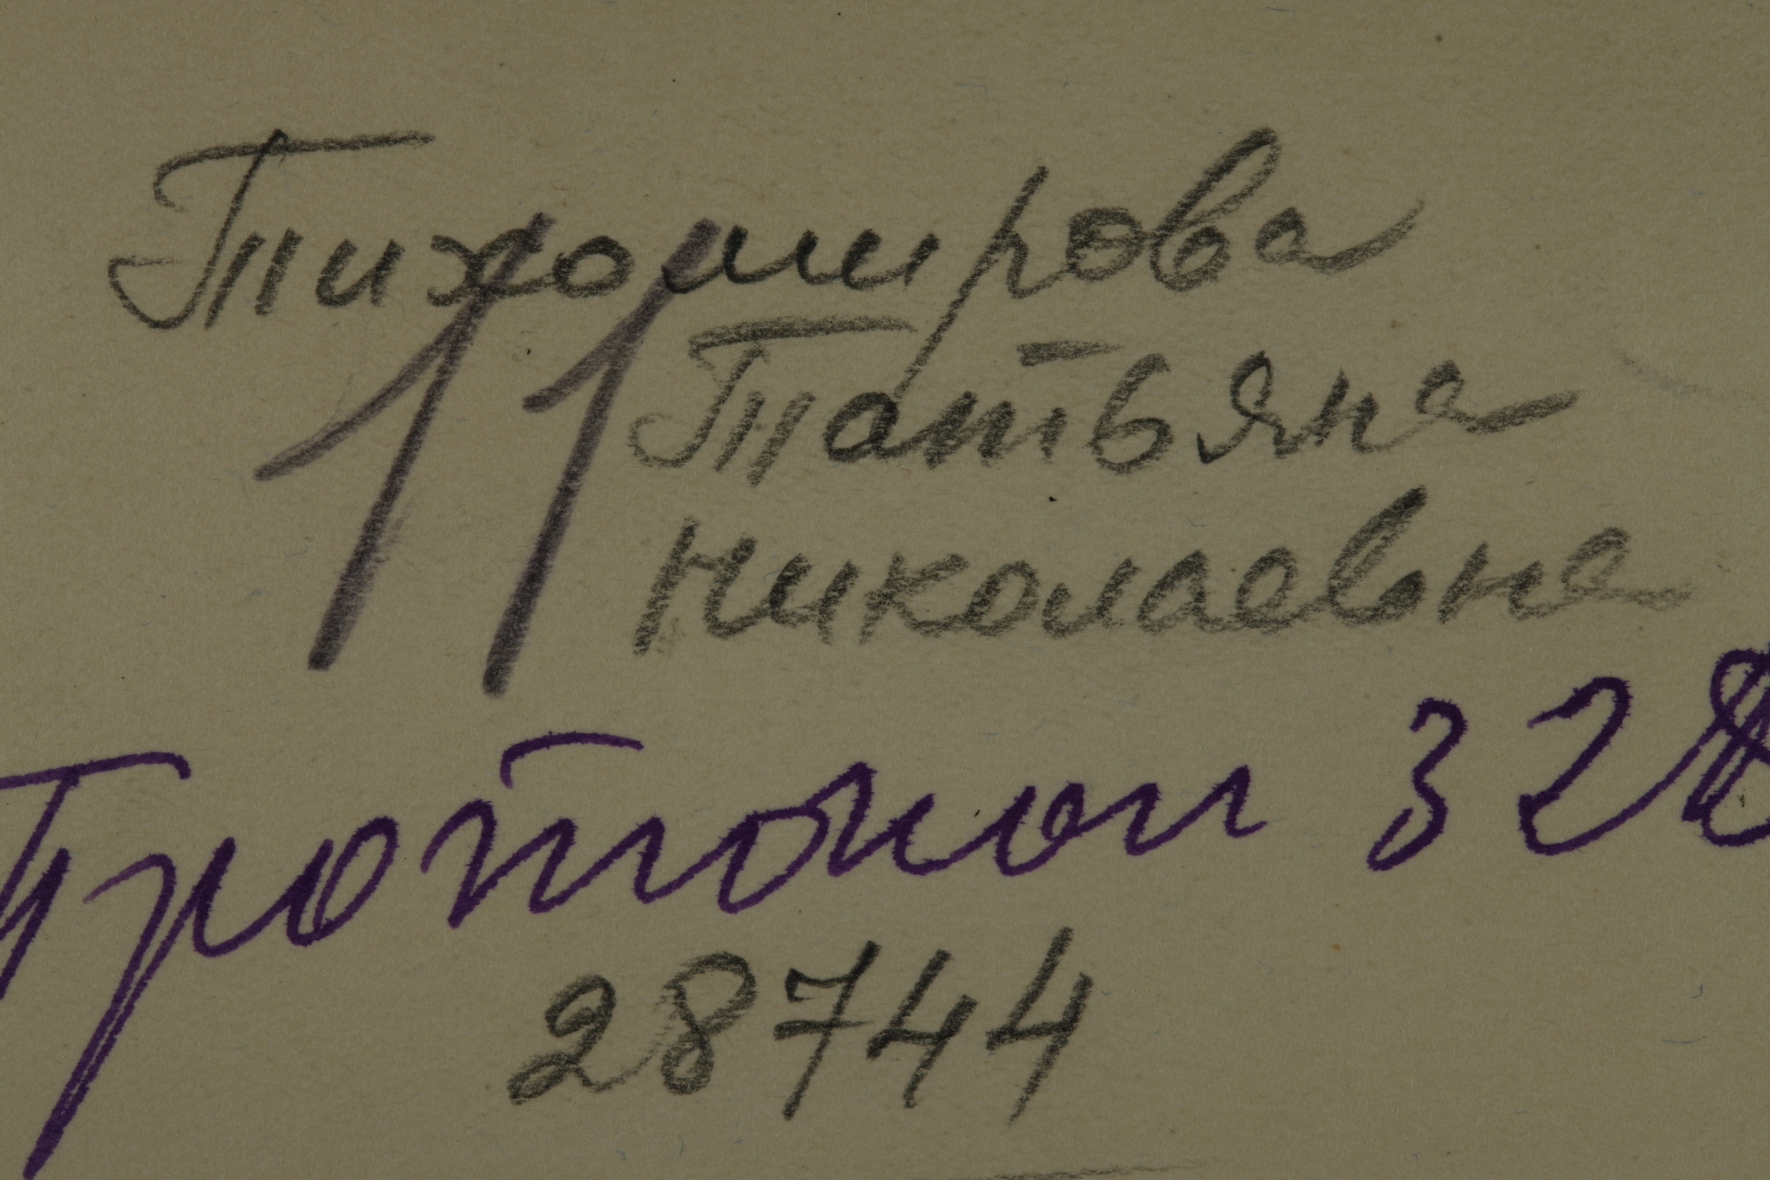 Тихомирова
11
Татьяна
Николаевна
Протокол 328
28744